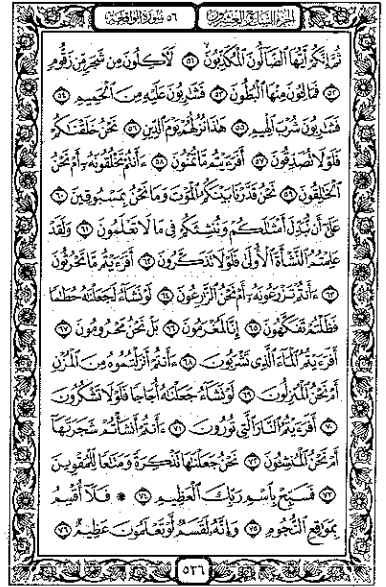 الجزء السابع والعشرون ٥٦ سورة الواقعة
ثُمَّ إِنَّكُمْ أَيُّهَا ٱلضَّآلُّونَ ٱلْمُكَذِّبُونَ ٥١ لَأَكِلُونَ مِن شَجَرٍ مِّن زَقُّومٍ
٥٢ فَمَالِـُٔونَ مِنْهَا ٱلْبُطُونَ ٥٣ فَشَـٰرِبُونَ عَلَيْهِ مِنَ ٱلْحَمِيمِ ٥٤
فَشَـٰرِبُونَ شُرْبَ ٱلْهِيمِ ٥٥ هَـٰذَا نُزُلُهُمْ يَوْمَ ٱلدِّينِ ٥٦ نَحْنُ خَلَقْنَـٰكُمْ
فَلَوْلَا تُصَدِّقُونَ ٥٧ أَفَرَءَيْتُم مَّا تُمْنُونَ ٥٨ ءَأَنتُمْ تَخْلُقُونَهُۥٓ أَمْ نَحْنُ
ٱلْخَـٰلِقُونَ ٥٩ نَحْنُ قَدَّرْنَا بَيْنَكُمُ ٱلْمَوْتَ وَمَا نَحْنُ بِمَسْبُوقِينَ ٦٠
عَلَىٰٓ أَن نُّبَدِّلَ أَمْثَـٰلَكُمْ وَنُنشِئَكُمْ فِى مَا لَا تَعْلَمُونَ ٦١ وَلَقَدْ
عَلِمْتُمُ ٱلنَّشْأَةَ ٱلْأُولَىٰ فَلَوْلَا تَذَكَّرُونَ ٦٢ أَفَرَءَيْتُم مَّا تَحْرُثُونَ
٦٣ ءَأَنتُمْ تَزْرَعُونَهُۥٓ أَمْ نَحْنُ ٱلزَّٰرِعُونَ ٦٤ لَوْ نَشَآءُ لَجَعَلْنَـٰهُ حُطَـٰمًا
فَظَلْتُمْ تَفَكَّهُونَ ٦٥ إِنَّا لَمُغْرَمُونَ ٦٦ بَلْ نَحْنُ مَحْرُومُونَ ٦٧
أَفَرَءَيْتُمُ ٱلْمَآءَ ٱلَّذِى تَشْرَبُونَ ٦٨ ءَأَنتُمْ أَنزَلْتُمُوهُ مِنَ ٱلْمُزْنِ
أَمْ نَحْنُ ٱلْمُنزِلُونَ ٦٩ لَوْ نَشَآءُ جَعَلْنَـٰهُ أُجَاجًا فَلَوْلَا تَشْكُرُونَ
٧٠ أَفَرَءَيْتُمُ ٱلنَّارَ ٱلَّتِى تُورُونَ ٧١ ءَأَنتُمْ أَنشَأْتُمْ شَجَرَتَهَآ
أَمْ نَحْنُ ٱلْمُنشِـُٔونَ ٧٢ نَحْنُ جَعَلْنَـٰهَا تَذْكِرَةً وَمَتَـٰعًا لِّلْمُقْوِينَ
٧٣ فَسَبِّحْ بِٱسْمِ رَبِّكَ ٱلْعَظِيمِ ٧٤ ۞ فَلَآ أُقْسِمُ
بِمَوَٰقِعِ ٱلنُّجُومِ ٧٥ وَإِنَّهُۥ لَقَسَمٌ لَّوْ تَعْلَمُونَ عَظِيمٌ ٧٦
٥٣٦